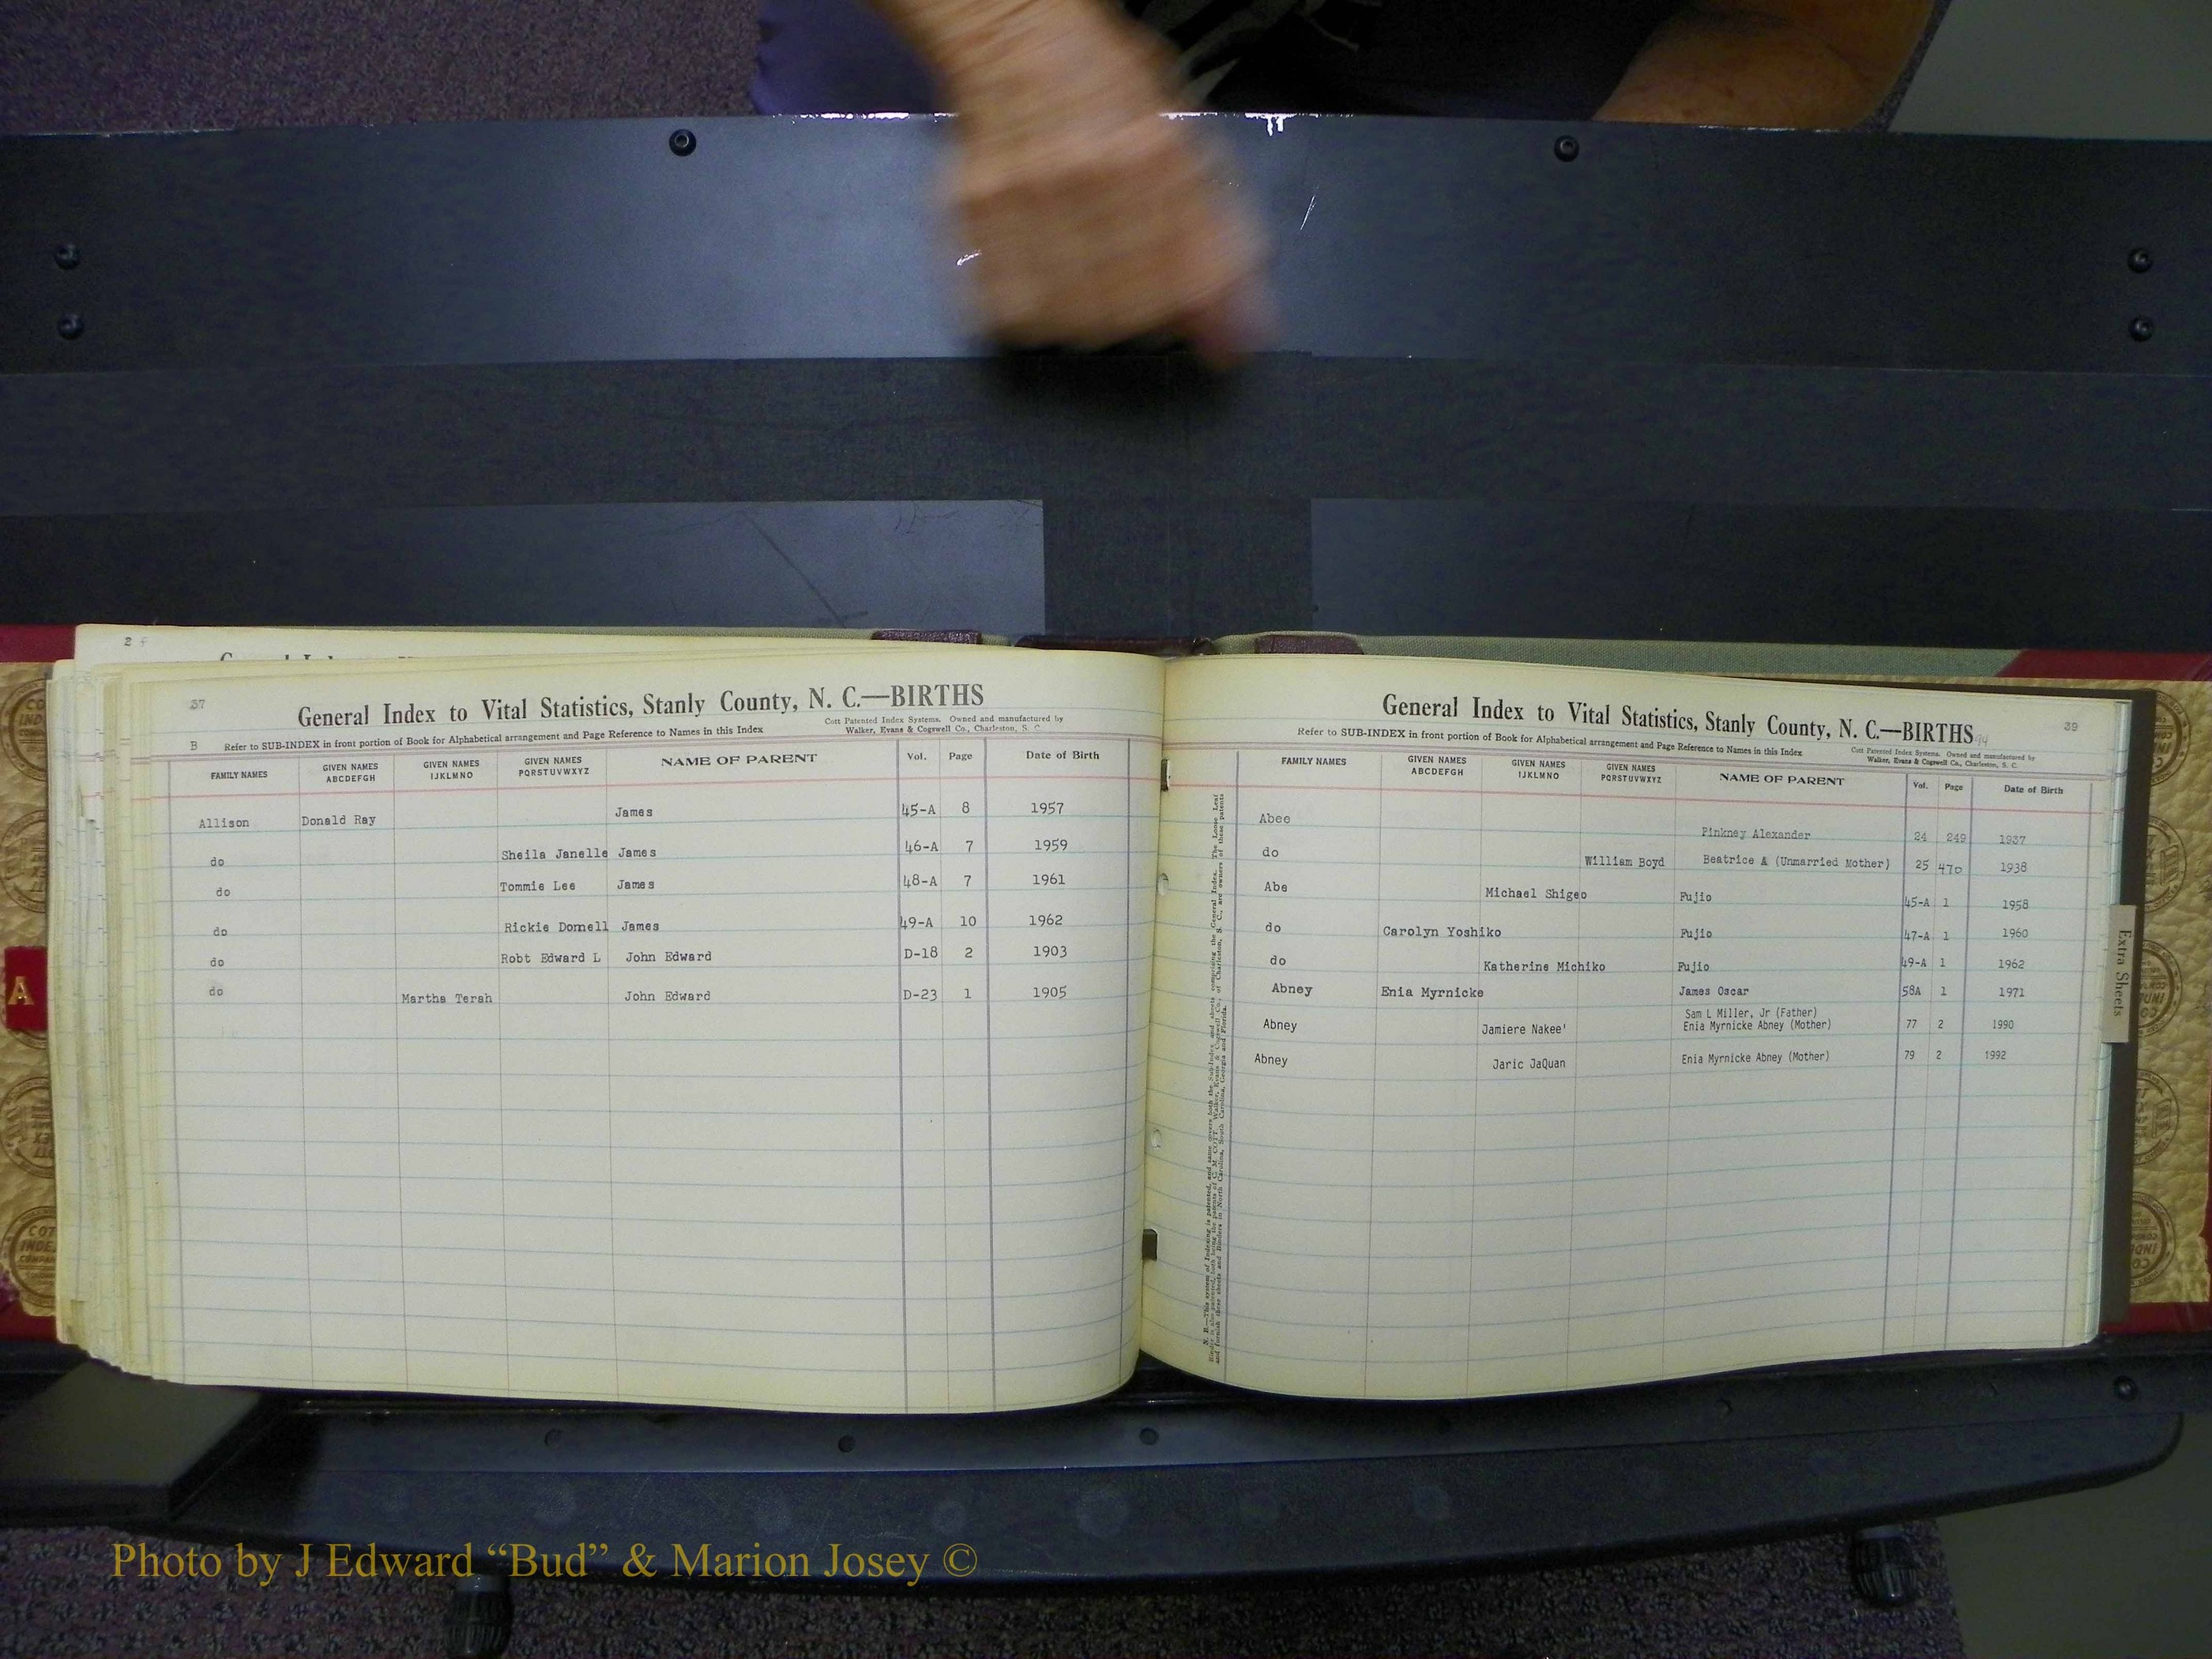 2
37
General Index to Vital Statistics, Stanly County, N. C.—BIRTHS
Cott Patented Index Systems. Owned and manufactured by
Walker, Evans & Cogswell Co., Charleston, S. C.
B Refer to SUB-INDEX in front portion of Book for Alphabetical arrangement and Page Reference to Names in this Index
FAMILY NAMES GIVEN NAMES ABCDEFGH GIVEN NAMES IJKLMNO GIVEN NAMES PQRSTUVWXYZ NAME OF PARENT Vol. Page Date of Birth
Allison Donald Ray James 45-A 8 1957
do Sheila Janelle James 46-A 7 1959
do Tommie Lee James 48-A 7 1961
do Rickie Dornell James 49-A 10 1962
do Robt Edward L John Edward D-18 2 1903
do Martha Terah John Edward D-23 1 1905
A
General Index to Vital Statistics, Stanly County, N. C.—BIRTHS 94
39
Refer to SUB-INDEX in front portion of Book for Alphabetical arrangement and Page Reference to Names in this Index
Cott Patented Index Systems. Owned and manufactured by
Walker, Evans & Cogswell Co., Charleston, S. C.
FAMILY NAMES GIVEN NAMES ABCDEFGH GIVEN NAMES IJKLMNO GIVEN NAMES PQRSTUVWXYZ NAME OF PARENT Vol. Page Date of Birth
Abee Pinkney Alexander 24 249 1937
do William Boyd Beatrice A (Unmarried Mother) 25 470 1938
Abe Michael Shigeo Fujio 45-A 1 1958
do Carolyn Yoshiko Fujio 47-A 1 1960
do Katherine Michiko Fujio 49-A 1 1962
Abney Enia Myrnicke James Oscar 58A 1 1971
Sam L Miller, Jr (Father)
Abney Jamiere Nakee' Enia Myrnicke Abney (Mother) 77 2 1990
Abney Jaric JaQuan Enia Myrnicke Abney (Mother) 79 2 1992
Extra Sheets
Photo by J Edward “Bud” & Marion Josey ©